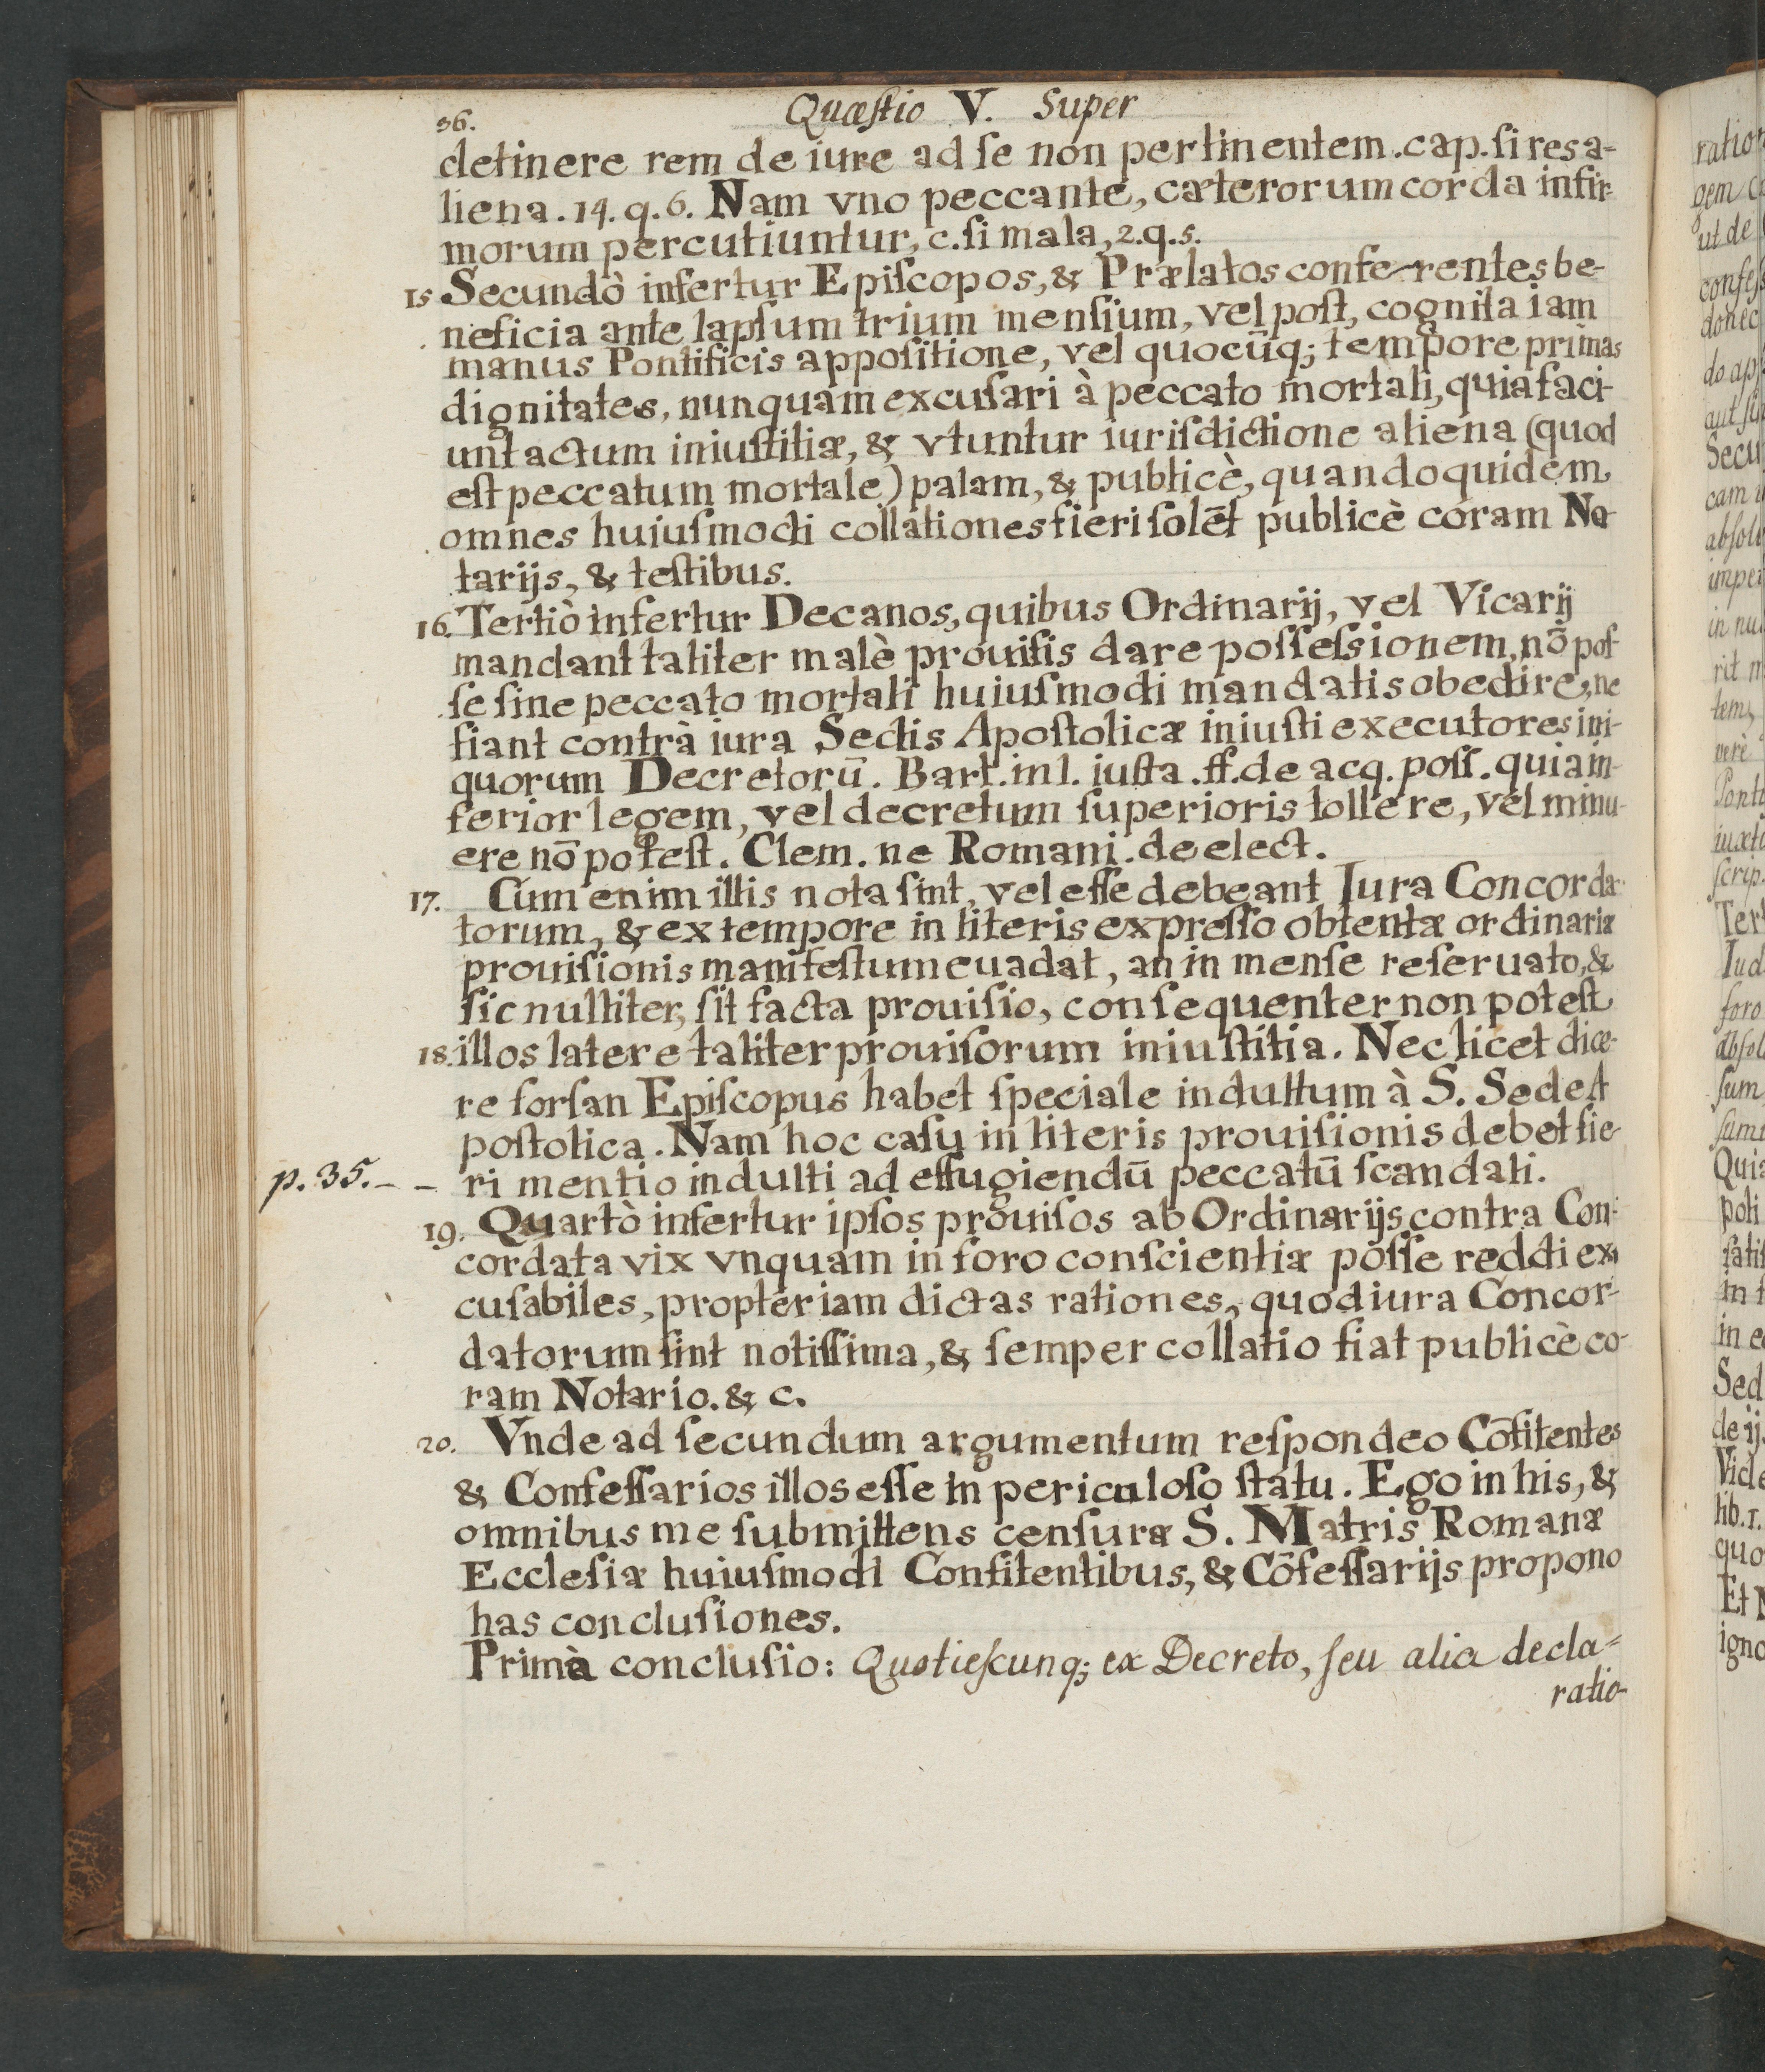 36.
Quæſtio V. Super
detinere rem de iure ad ſe non pertinentem. cap. ſi res a-
liena. 14. q. 6. Nam vno peccante, cæterorum corda infir-
morum percutiuntur, c. ſi mala, 2. q. 5.
15 Secundò infertur Epiſcopos, & Prælatos conferentes be-
neficia ante lapſum trium menſium, vel poſt, cognita iam
manus Pontificis appoſitione, vel quocūq; tempore primas
dignitates, nunquam excuſari à peccato mortali, quia faci-
unt actum iniuſtitiæ, & vtuntur iuriſdictione aliena (quod
eſt peccatum mortale) palam, & publicè, quandoquidem
omnes huiuſmodi collationes fieri ſolēt publicè coram No-
tarijs, & teſtibus.
16. Tertiò infertur Decanos, quibus Ordinarij, vel Vicarij
mandant taliter malè prouiſis dare poſſeſsionem, nō poſ-
ſe ſine peccato mortali huiuſmodi mandatis obedire, ne
fiant contrà iura Sedis Apoſtolicæ iniuſti executores ini-
quorum Decretorū. Bart. in l. iuſta. ff. de acq. poſſ. quia in-
ferior legem, vel decretum ſuperioris tollere, vel minu-
ere nō poteſt. Clem. ne Romani. de elect.
17. Cum enim illis nota ſint, vel eſſe debeant Iura Concorda-
torum, & ex tempore in literis expreſſo obtentæ ordinariæ
prouiſionis manifeſtum euadat, an in menſe reſeruato, &
ſic nulliter, ſit facta prouiſio, conſequenter non poteſt
18. illos latere taliter prouiſorum iniuſtitia. Nec licet dice-
re forſan Epiſcopus habet ſpeciale indultum à S. Sede A
poſtolica. Nam hoc caſu in literis prouiſionis debet fie-
p. 35. - - ri mentio indulti ad effugiendū peccatū ſcandali.
19. Quartò infertur ipſos prouiſos ab Ordinarijs contra Con-
cordata vix vnquam in foro conſcientiæ poſſe reddi ex-
cuſabiles, propter iam dictas rationes, quod iura Concor-
datorum ſint notiſſima, & ſemper collatio fiat publicè co-
ram Notario. & c.
20. Vnde ad ſecundum argumentum reſpondeo Cōfitentes
& Confeſſarios illos eſſe in periculoſo ſtatu. Ego in his, &
omnibus me ſubmittens cenſuræ S. Matris Romanæ
Eccleſiæ huiuſmodi Confitentibus, & Cōfeſſarijs propono
has concluſiones.
Prima concluſio: Quotieſcunq; ex Decreto, ſeu alia decla-
ratio-